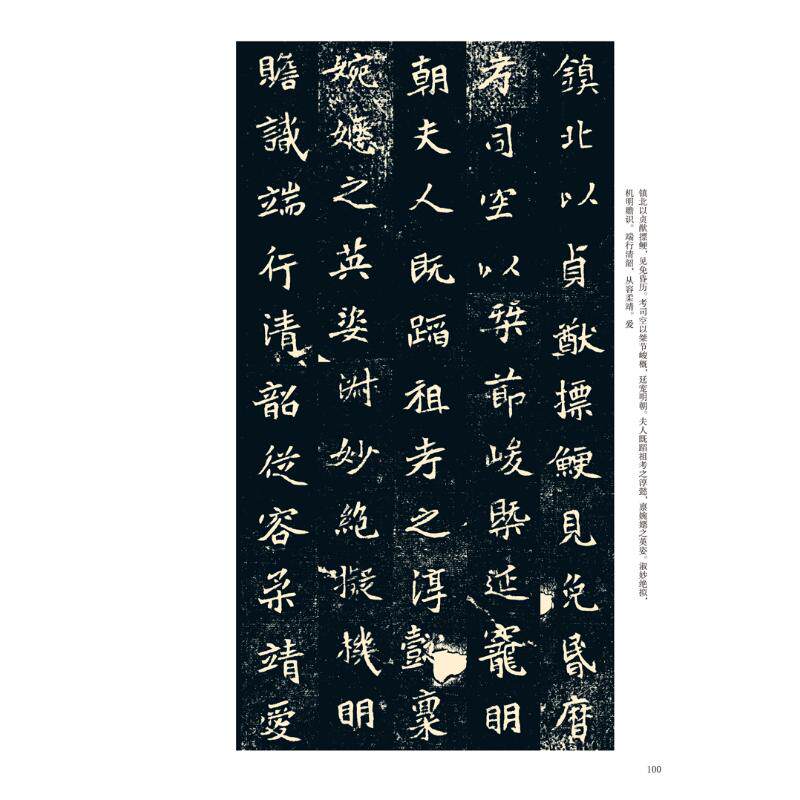 鎮北以貞猷摽鯁見免昏曆
考司空以桀節峻槩延寵明
朝夫人既蹈祖考之淳懿稟
婉嬺之英姿淑妙絶擬機明
瞻識端行清韶從容柔靖愛
镇北以贞猷摽鲠，见免昏历。考司空以桀节峻概，延宠明朝。夫人既蹈祖考之淳懿，禀婉嬺之英姿。淑妙绝拟，
机明瞻识。端行清韶，从容柔靖。爱
100